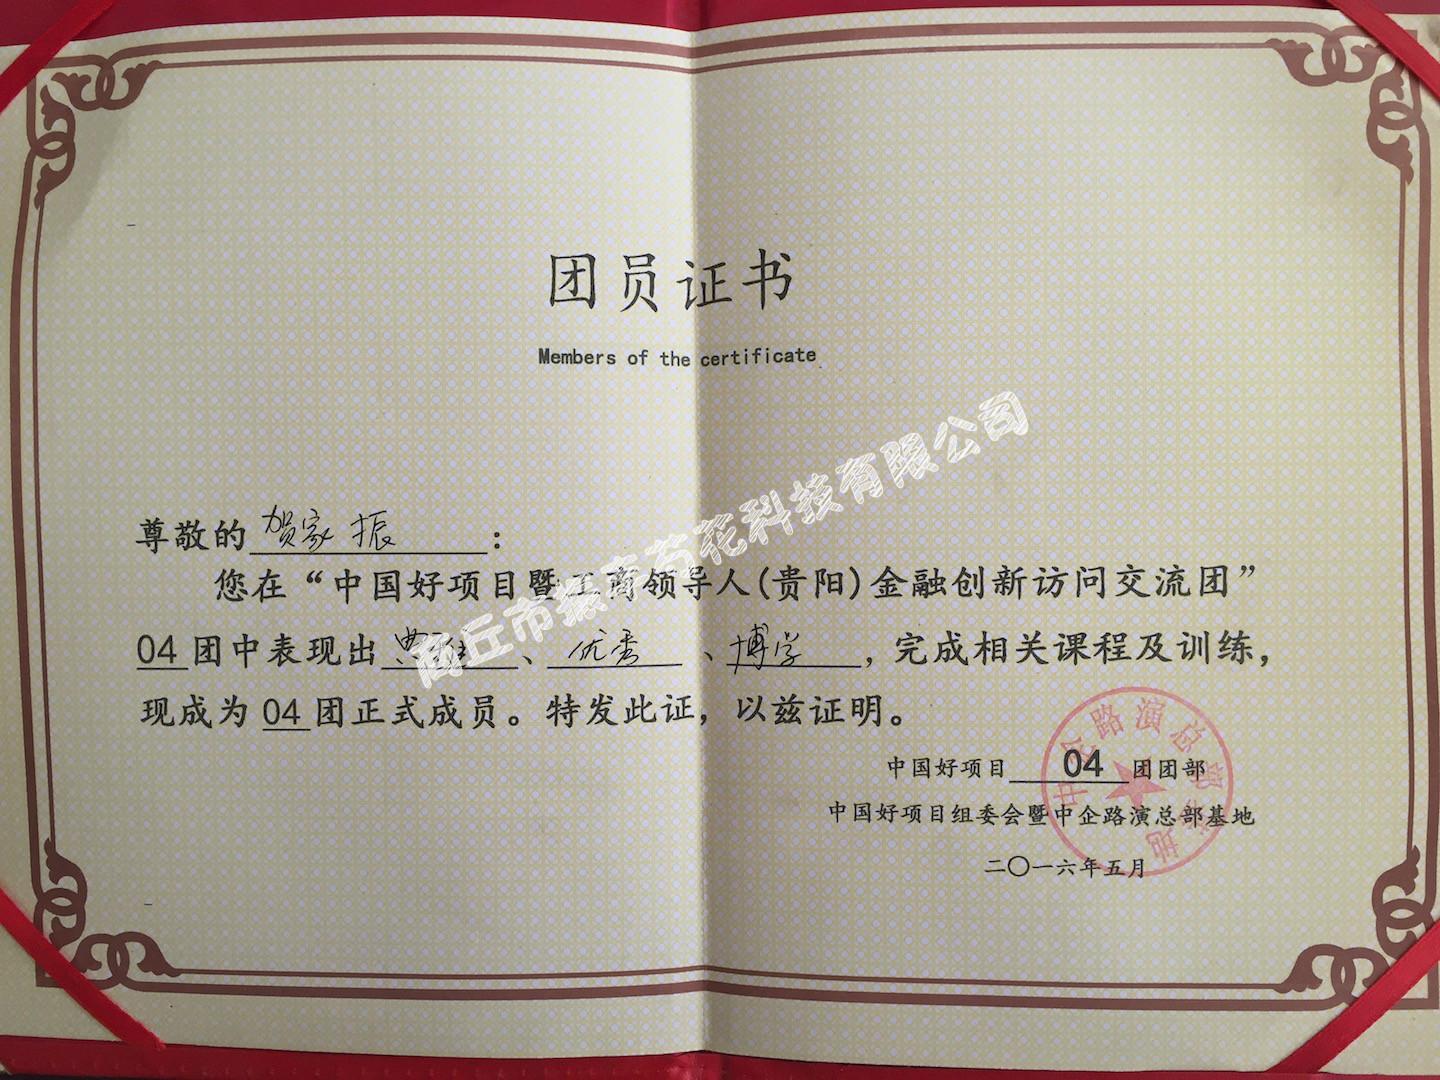 团员证书
Members of the certificate
尊敬的贺家振：
您在“中国好项目暨工商领导人(贵阳)金融创新访问交流团”
04团中表现出典雅、优秀、博学，完成相关课程及训练，
现成为04团正式成员。特发此证，以兹证明。
中国好项目04团团部
中国好项目组委会暨中企路演总部基地
二〇一六年五月
中企路演总部基地
商丘市振宇药花科技有限公司